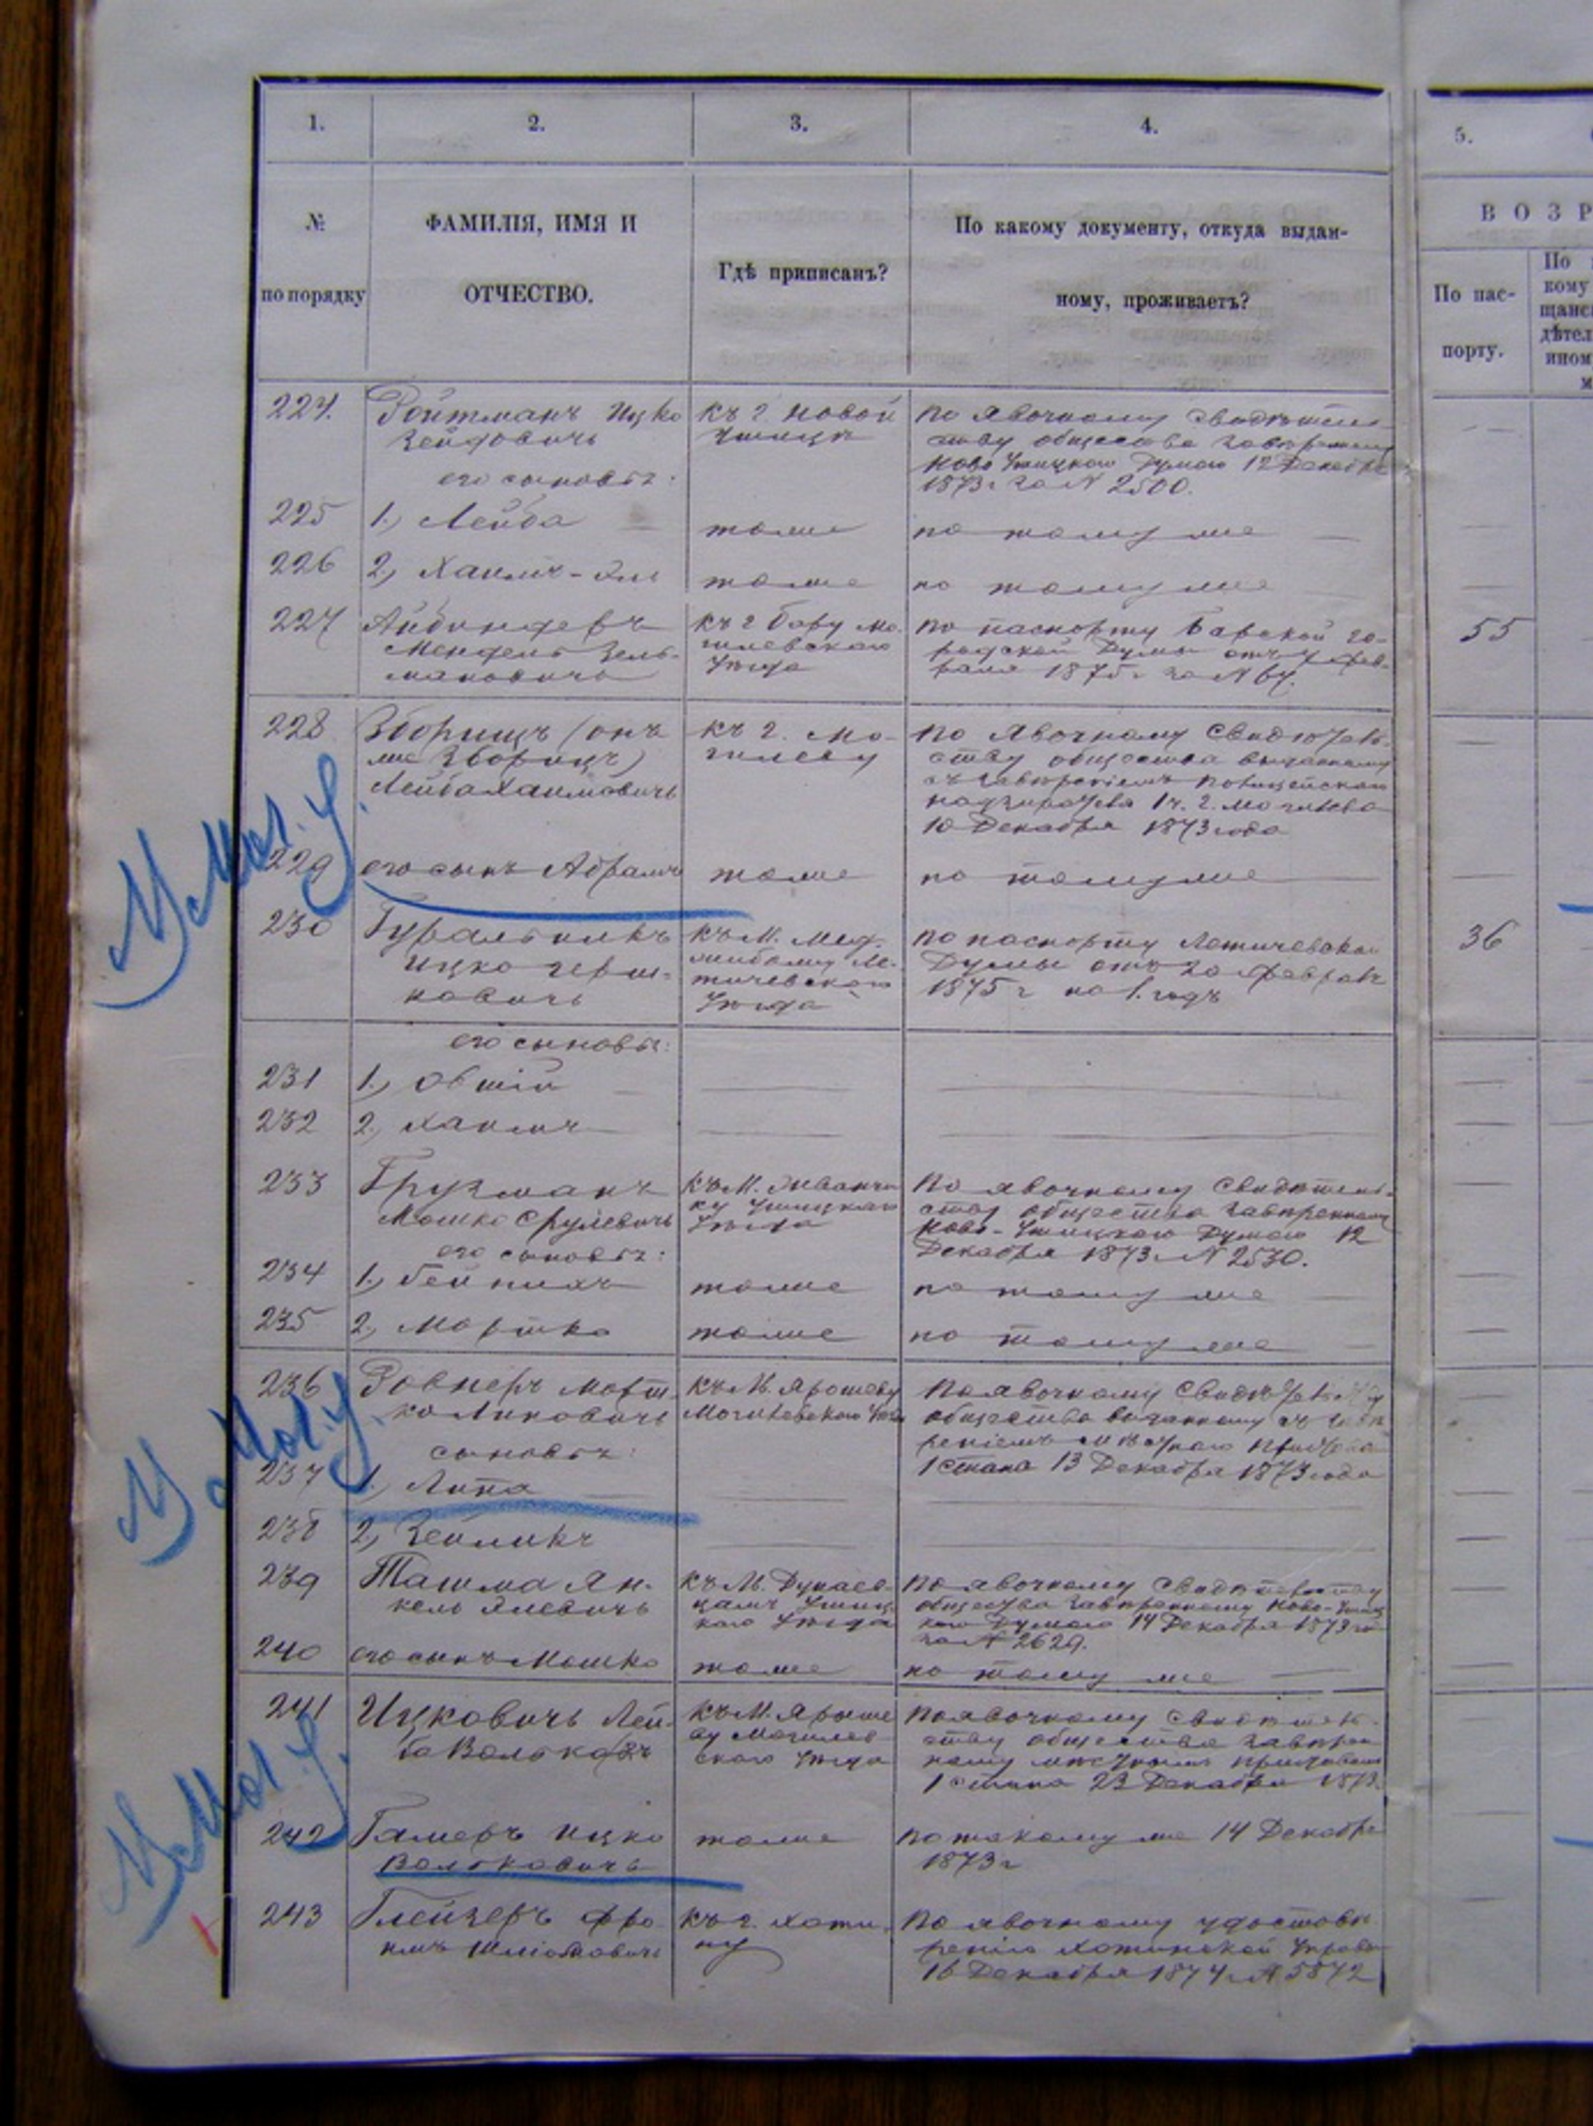 1.
2.
3.
4.
5.
№
по порядку
ФАМИЛІЯ, ИМЯ И
ОТЧЕСТВО.
Гдѣ приписанъ?
По какому документу, откуда выдан-
ному, проживаетъ?
ВОЗР
По пас-
порту.
По
кому
щанс
дѣтел
ином
м
224. Ройтманъ Ицко
Зейдовичъ
къ г. Новой
Ушицѣ
по явочному свидѣтель-
ству общества завѣренному
Ново Ушицкою Думою 12 Декабря
1873 г. за N 2500.
его сыновья:
225 1., Лейба
тоже
по тому же
226 2., Хаимъ-
тоже
по тому же
227
Мендель Зель-
мановичъ
къ г Бару Мо-
гилевскаго
Уѣзда
по паспорту Барской го-
родской Думы отъ 4 фев-
раля 1875 г за N 64.
55
228 Зборищъ (онъ
же Зборицъ)
Лейба Хаимовичъ
къ г. Мо-
гилеву
по явочному свидѣтель-
ству общества выданному
съ завѣреніемъ полицейскаго
надзирателя 1 ч. г. Могилева
10 Декабря 1873 года
229 его сынъ Абрамъ
тоже
по тому же
230 Гуральникъ
Ицко Герш-
ковичъ
къ М. Меджибожу Ле-
тичевскаго
Уѣзда
по паспорту Летичевской
Думы отъ 20 февраля
1875 г на 1. годъ
36
его сыновья:
231 1., Овшій
232 2., Хаимъ
233 Грузманъ
Мошко Срулевичъ
къ М. Жванчи-
ку Ушицкаго
Уѣзда
По явочному свидѣтель-
ству общества завѣренному
Ново-Ушицкою Думою 12
Декабря 1873 г. N 2530.
его сыновья:
234 1., Бейнихъ
тоже
по тому же
235 2., Мортко
тоже
по тому же
236 РовнеръМорт-
ко Липовичъ
къ М. Ярошеву
Могилевскаго Уѣзда
По явочному свидѣтельству
общества выданному съ завѣ-
реніемъ
1 стана 13 Декабря 1873 года
сыновья:
237 1., Липа
238 2., Зейликъ
239 Ташма Ян-
кель Элевичъ
къ М. Дунаев-
цамъ Ушиц-
каго Уѣзда
По явочному свидѣтельству
общества завѣренному Ново-Ушиц-
кою Думою 14 Декабря 1873 го
за N 2629.
240 его сынъ Мошко
тоже
по тому же
241 Ицковичъ Лей-
ба Вольковъ
къ М. Яроше-
ву Могилев-
скаго Уѣзда
По явочному свидѣтель-
ству общества завѣрен-
ному
1 стана 23 Декабря 1873.
242 Гамеръ Ицко
Вольковичъ
тоже
по такому же 14 Декабря
1873 г
243 Глейзеръ Фро-
имъ Шліомовичъ
къ г. Хоти-
ну
По явочному удостовѣ-
ренію Хотинской Управы
16 Декабря 1874 г N 5872